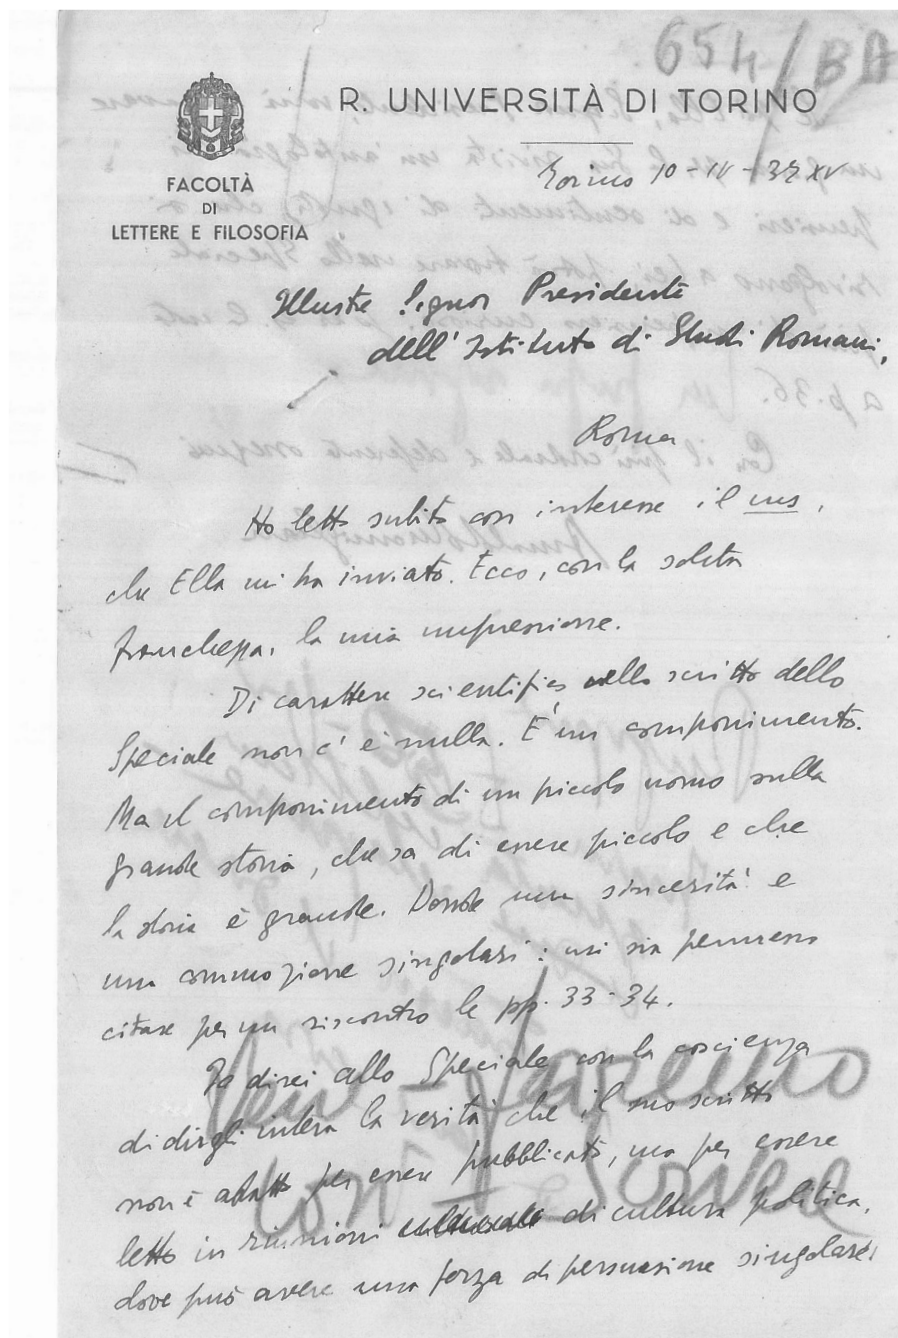 654/BA
R. UNIVERSITÀ DI TORINO
Torino 10-IV-37 XV
FACOLTÀ
DI
LETTERE E FILOSOFIA
Illustre Signor Presidente
dell'Istituto di Studi Romani,
Roma
Ho letto subito con interesse il ms.
che Ella mi ha inviato. Ecco, con la solita
franchezza, la mia impressione.
Di carattere scientifico nello scritto dello
Speciale non c'è nulla. È un componimento.
Ma il componimento di un piccolo uomo sulla
grande storia, che sa di essere piccolo e che
la storia è grande. Donde una sincerità e
una commozione singolari: mi sia permesso
citare per un riscontro le pp. 33-34.
Io direi allo Speciale con la coscienza
di dirgli intera la verità che il suo scritto
non è adatto per essere pubblicato, ma per essere
letto in riunioni di cultura politica,
dove può avere una forza di persuasione singolare,